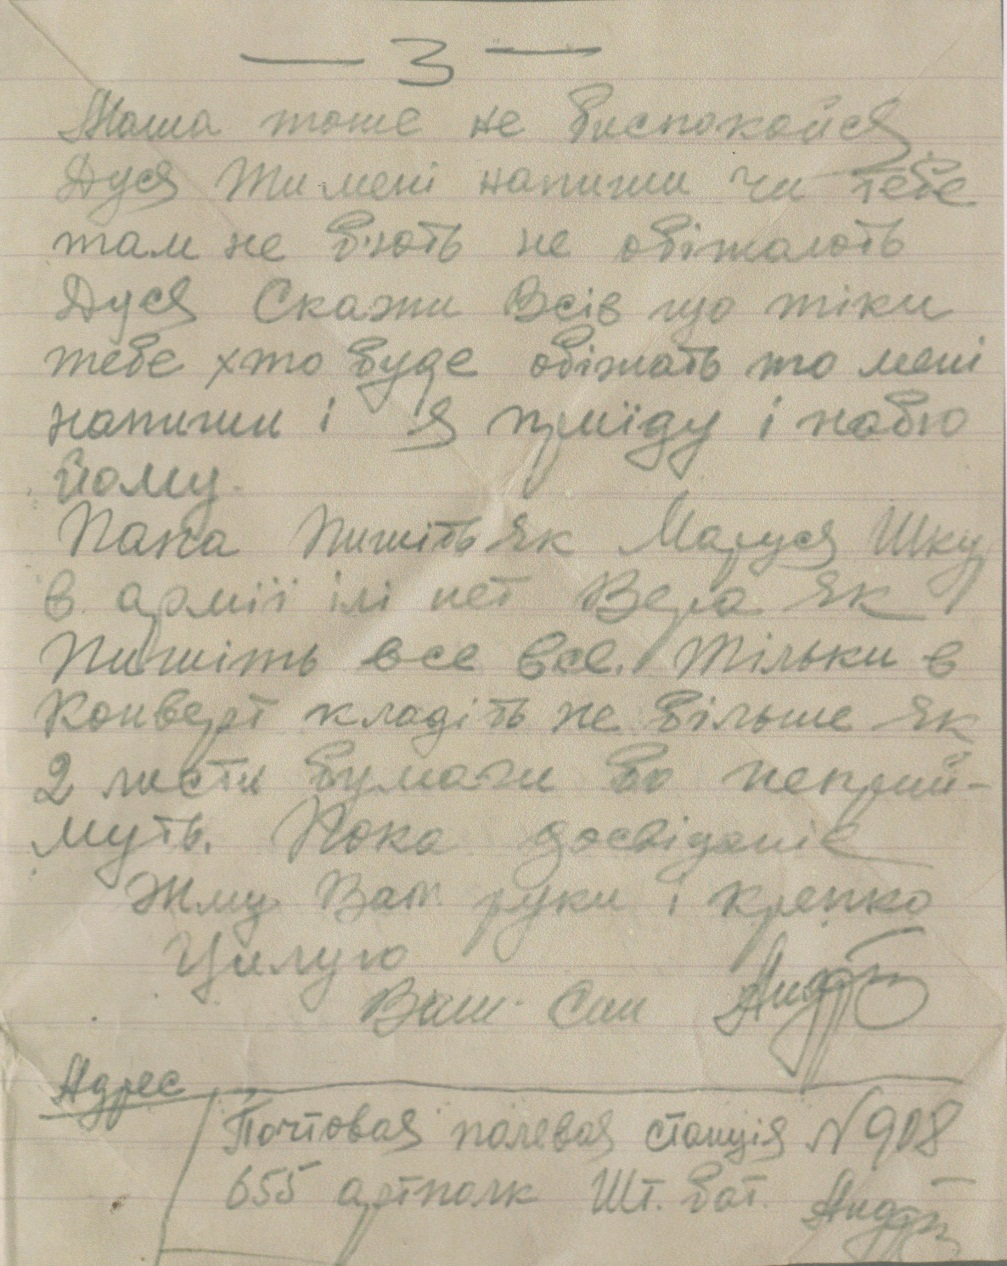 — 3 —
Маша тоже не биспокойся
Дуся Ти мені напиши чи тебе
там не бють не обіжають
Дуся Скажи Всів що тіки
тебе хто буде обіжать то мені
напиши і я приїду і набю
йому.
Папа Пишіть як Маруся Шку
в армії ілі нет Вера як
Пишіть все все. Тільки в
Конверт кладіть не більше як
2 листи бумаги бо неприй-
муть. Пока досвіданіє
Жму Вам руки і крепко
Цилую
Ваш Син
Адрес
Почтовая полевая станція N 908
655 артполк Шт. бат.